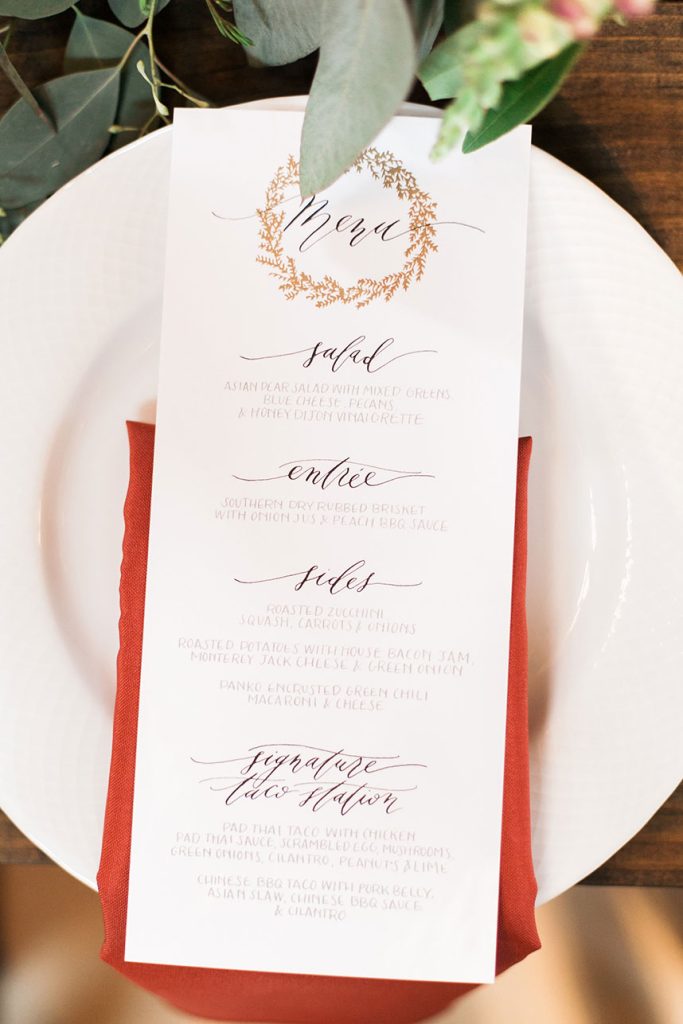 Menu
salad
ASIAN PEAR SALAD WITH MIXED GREENS,
BLUE CHEESE, PECANS
& HONEY DIJON VINAIGRETTE
entrée
SOUTHERN DRY RUBBED BRISKET
WITH ONION JUS & PEACH BBQ SAUCE
sides
ROASTED ZUCCHINI
SQUASH, CARROTS & ONIONS
ROASTED POTATOES WITH HOUSE BACON JAM,
MONTEREY JACK CHEESE & GREEN ONION
PANKO ENCRUSTED GREEN CHILI
MACARONI & CHEESE
signature
taco station
PAD THAI TACO WITH CHICKEN
PAD THAI SAUCE, SCRAMBLED EGG, MUSHROOMS,
GREEN ONIONS, CILANTRO, PEANUTS & LIME
CHINESE BBQ TACO WITH PORK BELLY,
ASIAN SLAW, CHINESE BBQ SAUCE
& CILANTRO